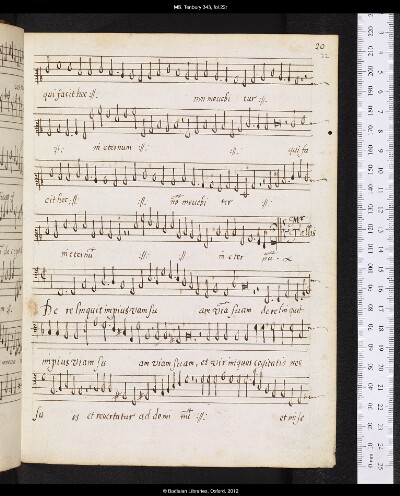 MS. Tenbury 343, fol.22r
20
22
qui facit hec :||: non movebi tur :||:
:||: in eternum :||: :||: qui fa
cit hec :||: :||: nō movebi tur :||:
in eternū :||: :||: in eter nū
Mr
Tallis
De re linquit impius viam su am viā suam derelinquit
impius viam su am viam suam, et vir iniquus cogitatio nes
su as et revertatur ad domi nū :||: et mise
© Bodleian Libraries, Oxford, 2012